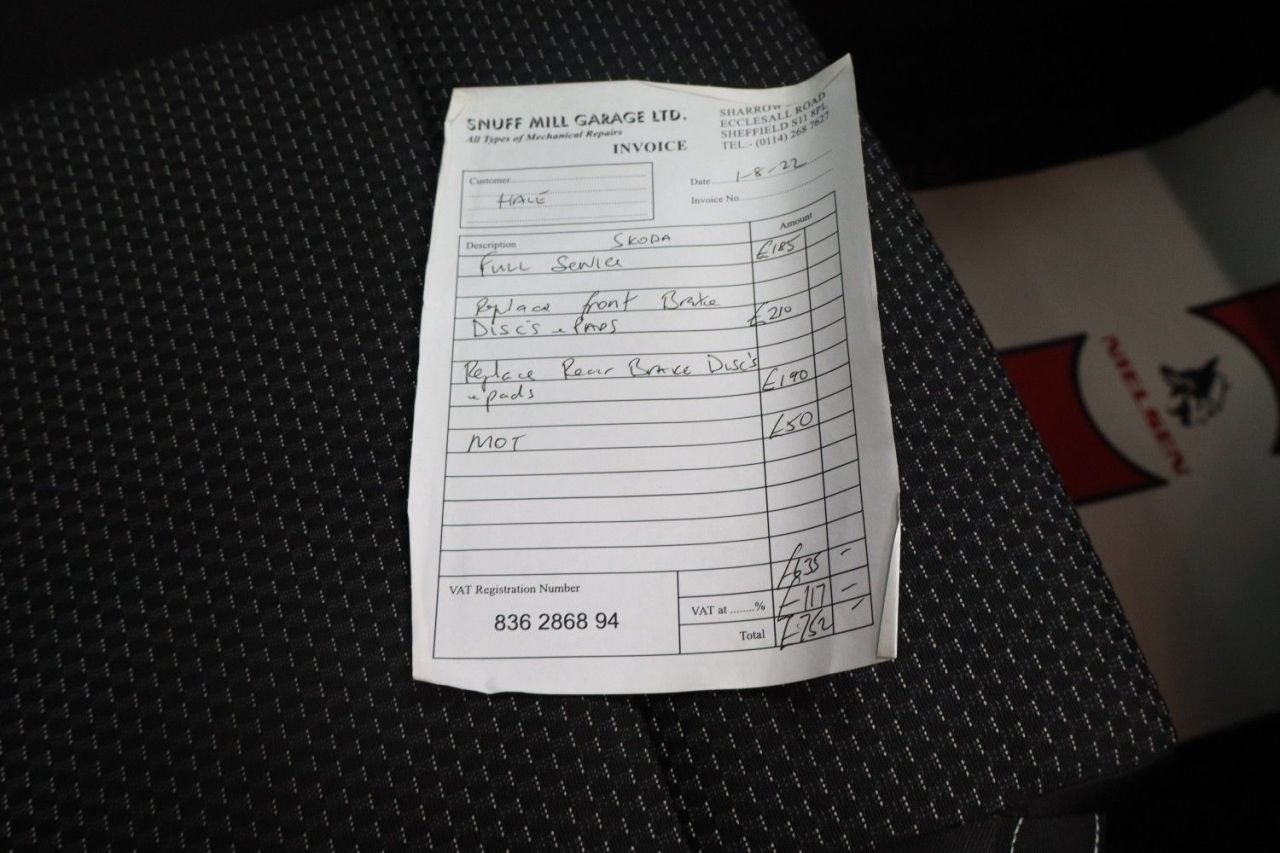 SNUFF MILL GARAGE LTD.
All Types of Mechanical Repairs
INVOICE
SHARROW
ECCLESALL ROAD
SHEFFIELD S11 8PL
TEL:- (0114) 268 7627
Customer
HALE
Date 1-8-22
Invoice No.
Description SKODA Amount
FULL Service £185
Replace front Brake
Disc's & PADS £210
Replace Rear BRAKE Disc's
& pads £190
MOT £50
£635 -
VAT Registration Number
836 2868 94
VAT at ........% £117 -
Total £752 -
NIELSEN